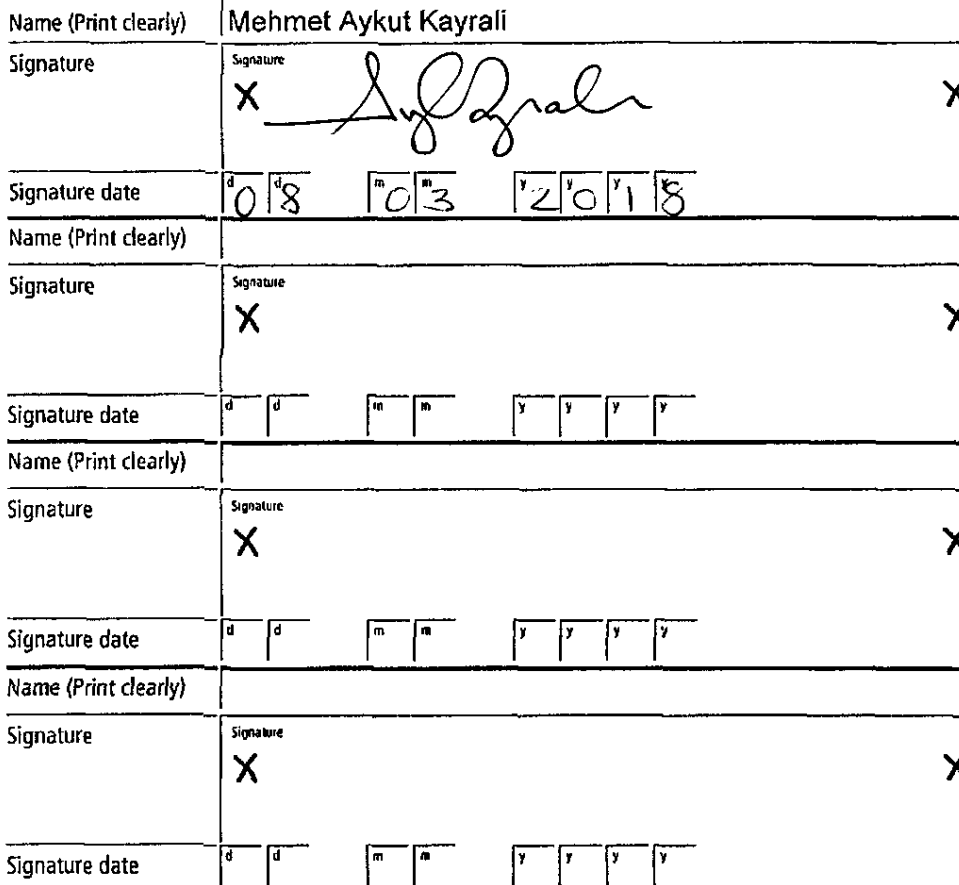 Name (Print clearly) Mehmet Aykut Kayrali
Signature Signature
X X
Signature date d0 d8 m0 m3 y2 y0 y1 y8
Name (Print clearly)
Signature Signature
X X
Signature date d d m m y y y y
Name (Print clearly)
Signature Signature
X X
Signature date d d m m y y y y
Name (Print clearly)
Signature Signature
X X
Signature date d d m m y y y y